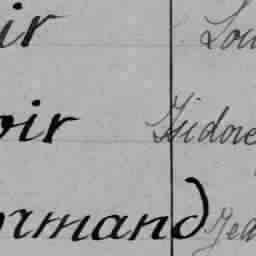 ir Lou
oir Isidore
ormand Jea